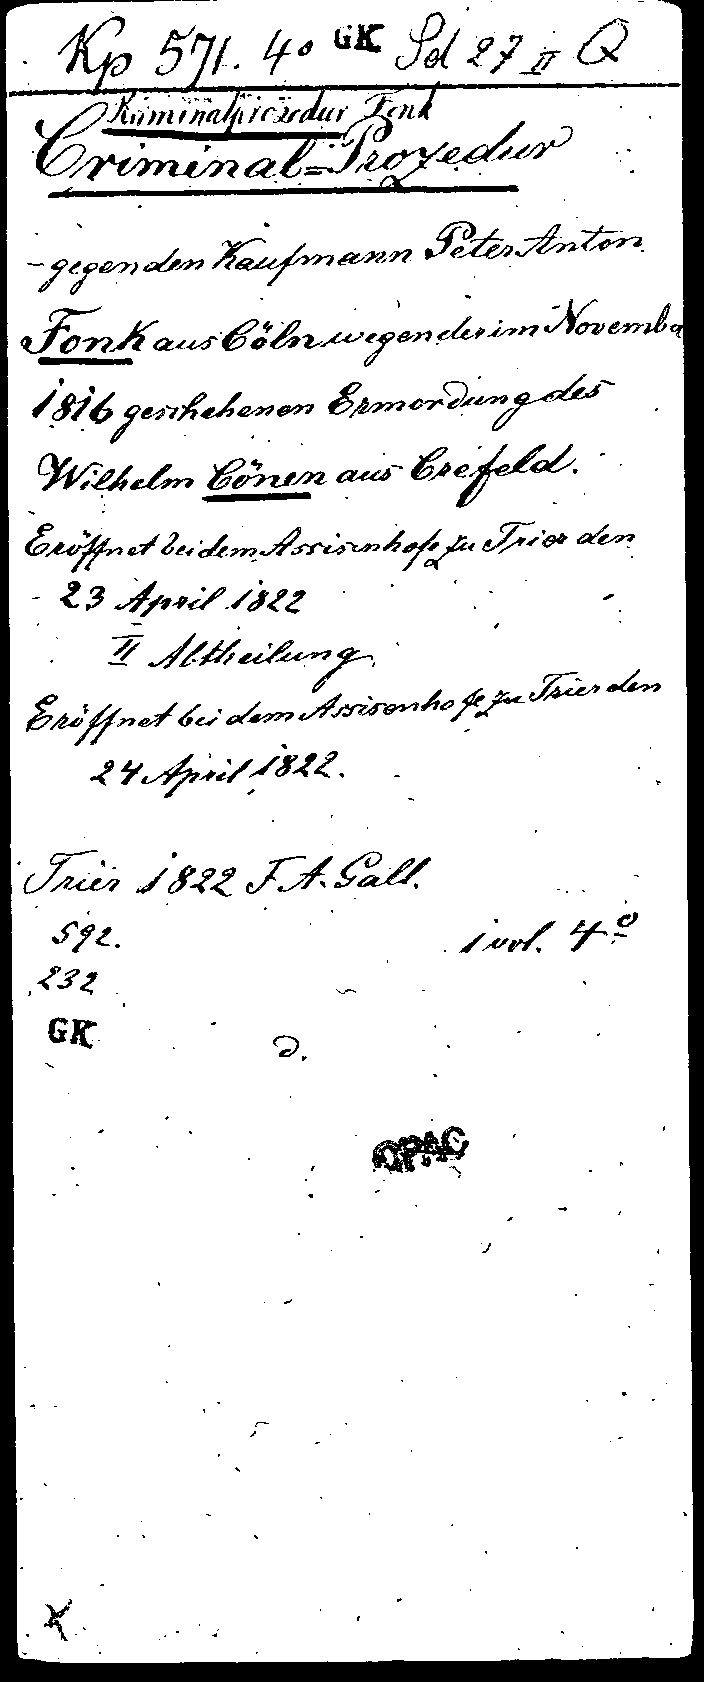 Kp 571. 4° GK Sd 27 II Q
Kriminalprozedur Fonk
Criminal=Prozedur
- gegen den Kaufmann Peter Anton
Fonk aus Cöln wegen der im November
1816 geschehenen Ermordung des
Wilhelm Cönen aus Crefeld.
Eröffnet bei dem Assisenhofe zu Trier den
23 April 1822
II Abtheilung.
Eröffnet bei dem Assisenhofe zu Trier den
24 April 1822.
Trier 1822 F. A. Gall.
592. 1 vol. 4°
232
GK
D.
OPAC